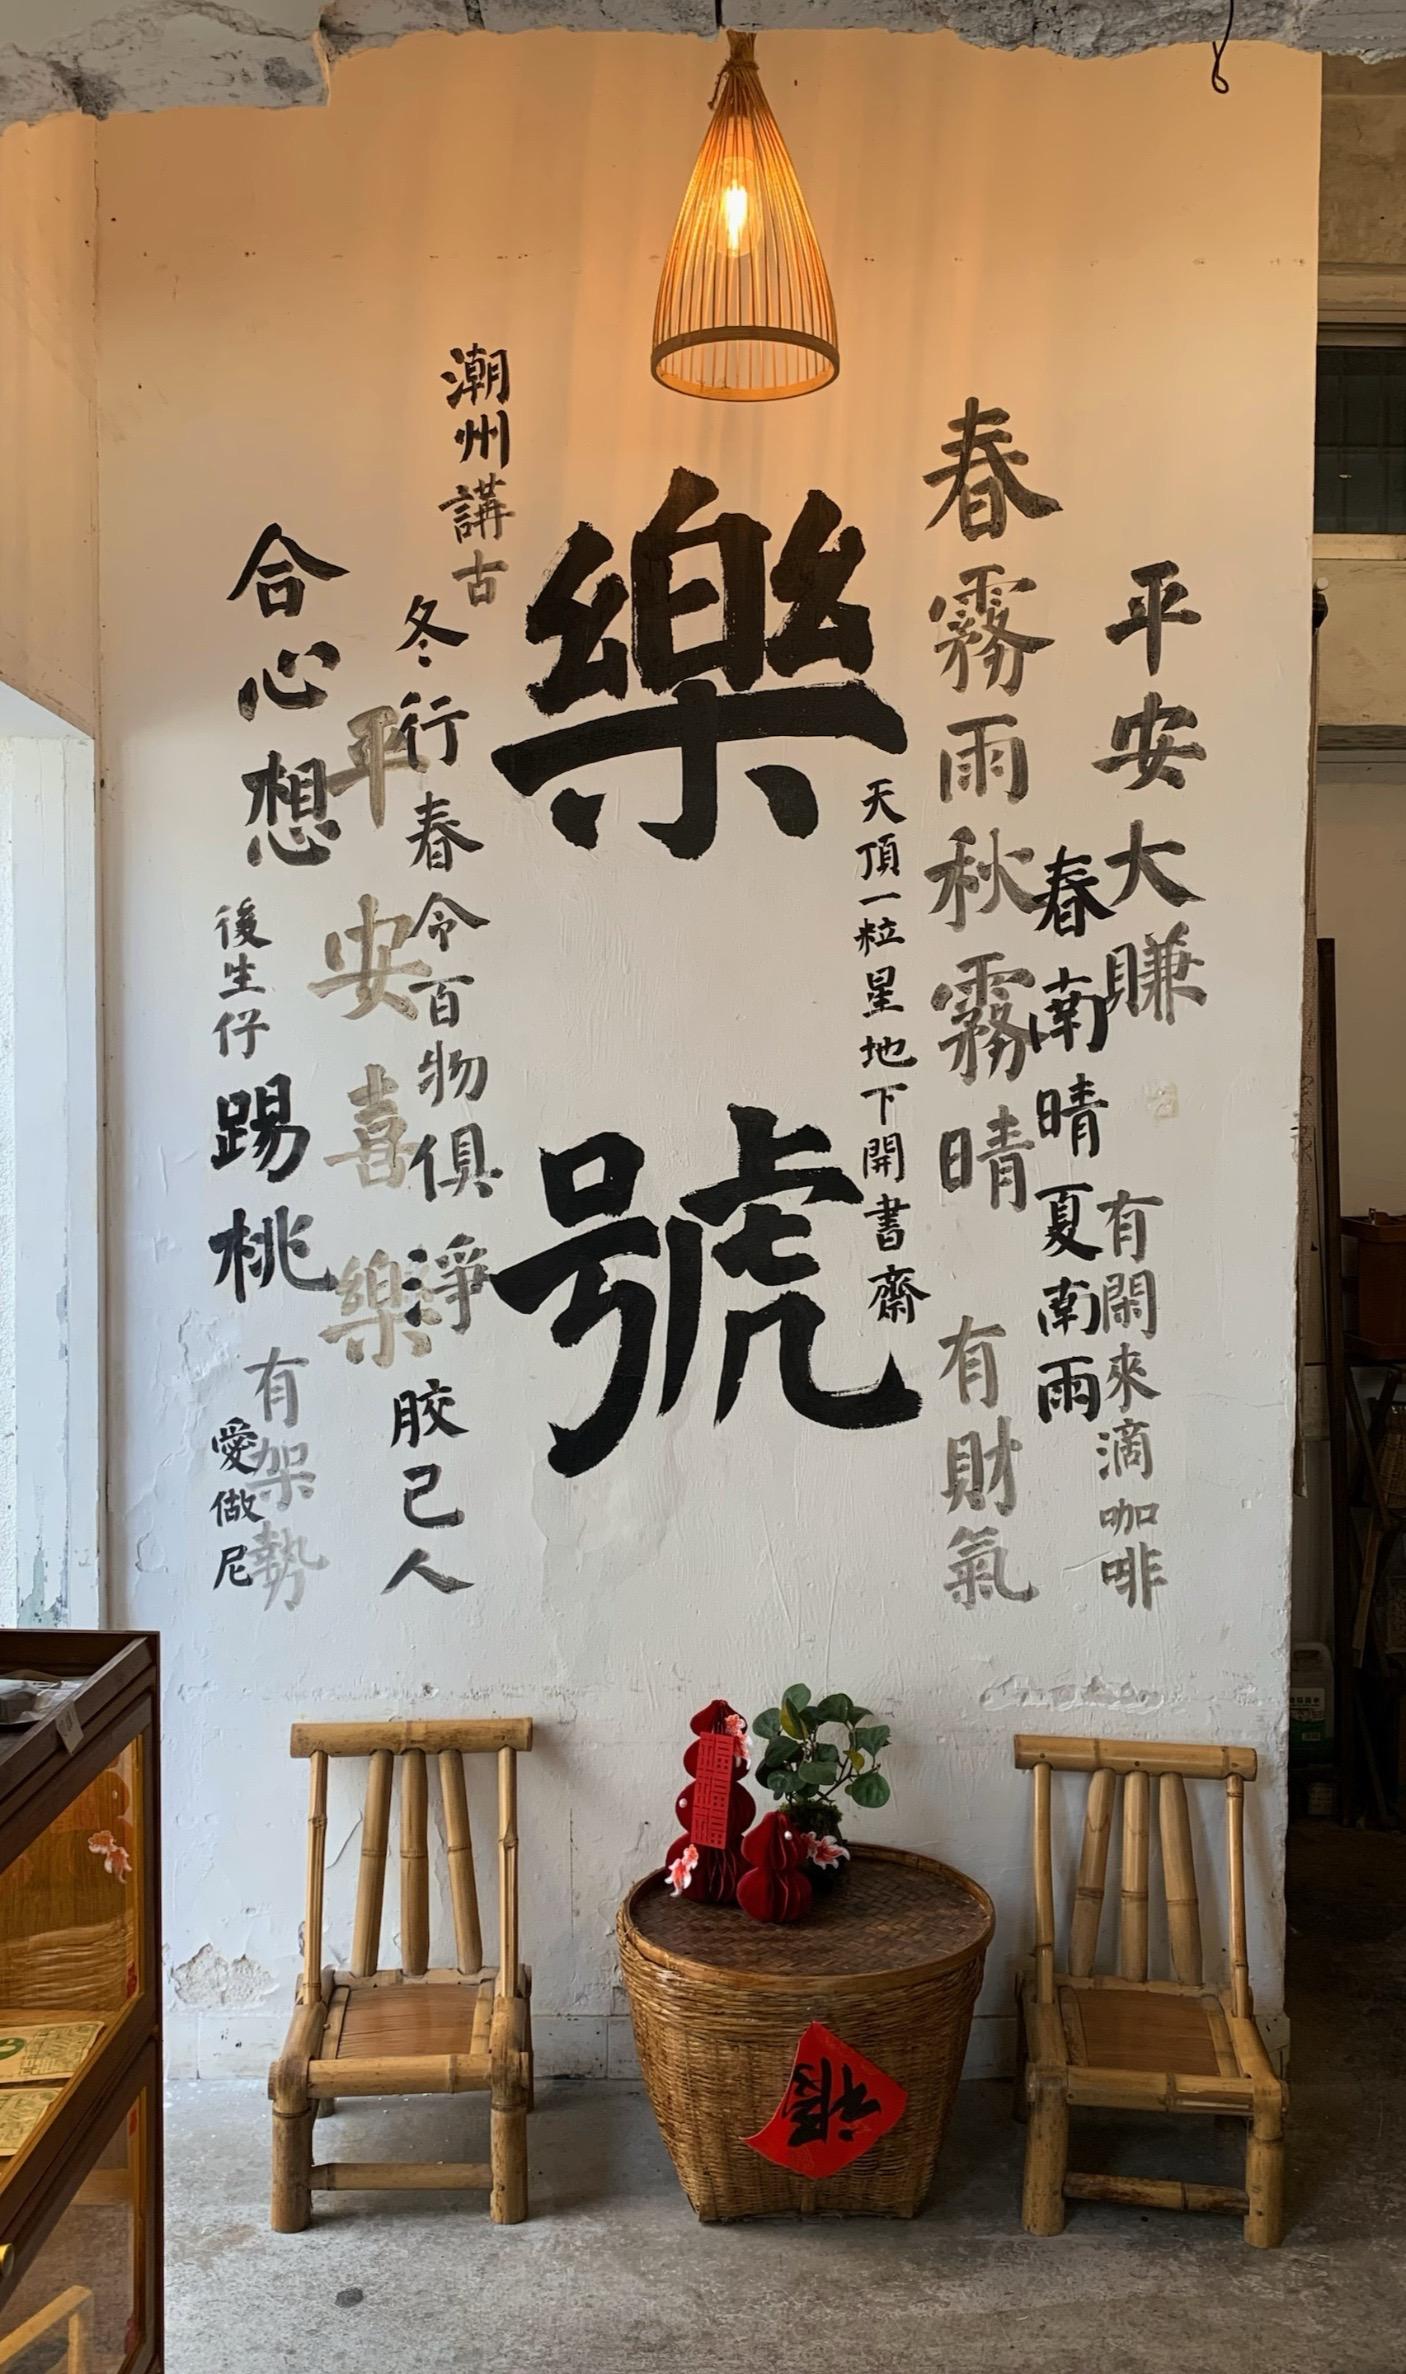 平安大賺
有閑來滴咖啡
春南晴夏南雨
春霧雨秋霧晴
有財氣
天頂一粒星地下開書齋
樂號
潮州講古
冬行春令百物俱淨
膠己人
平安喜樂
合心想
後生仔
踢桃
有架勢
愛做尼
福福福
福